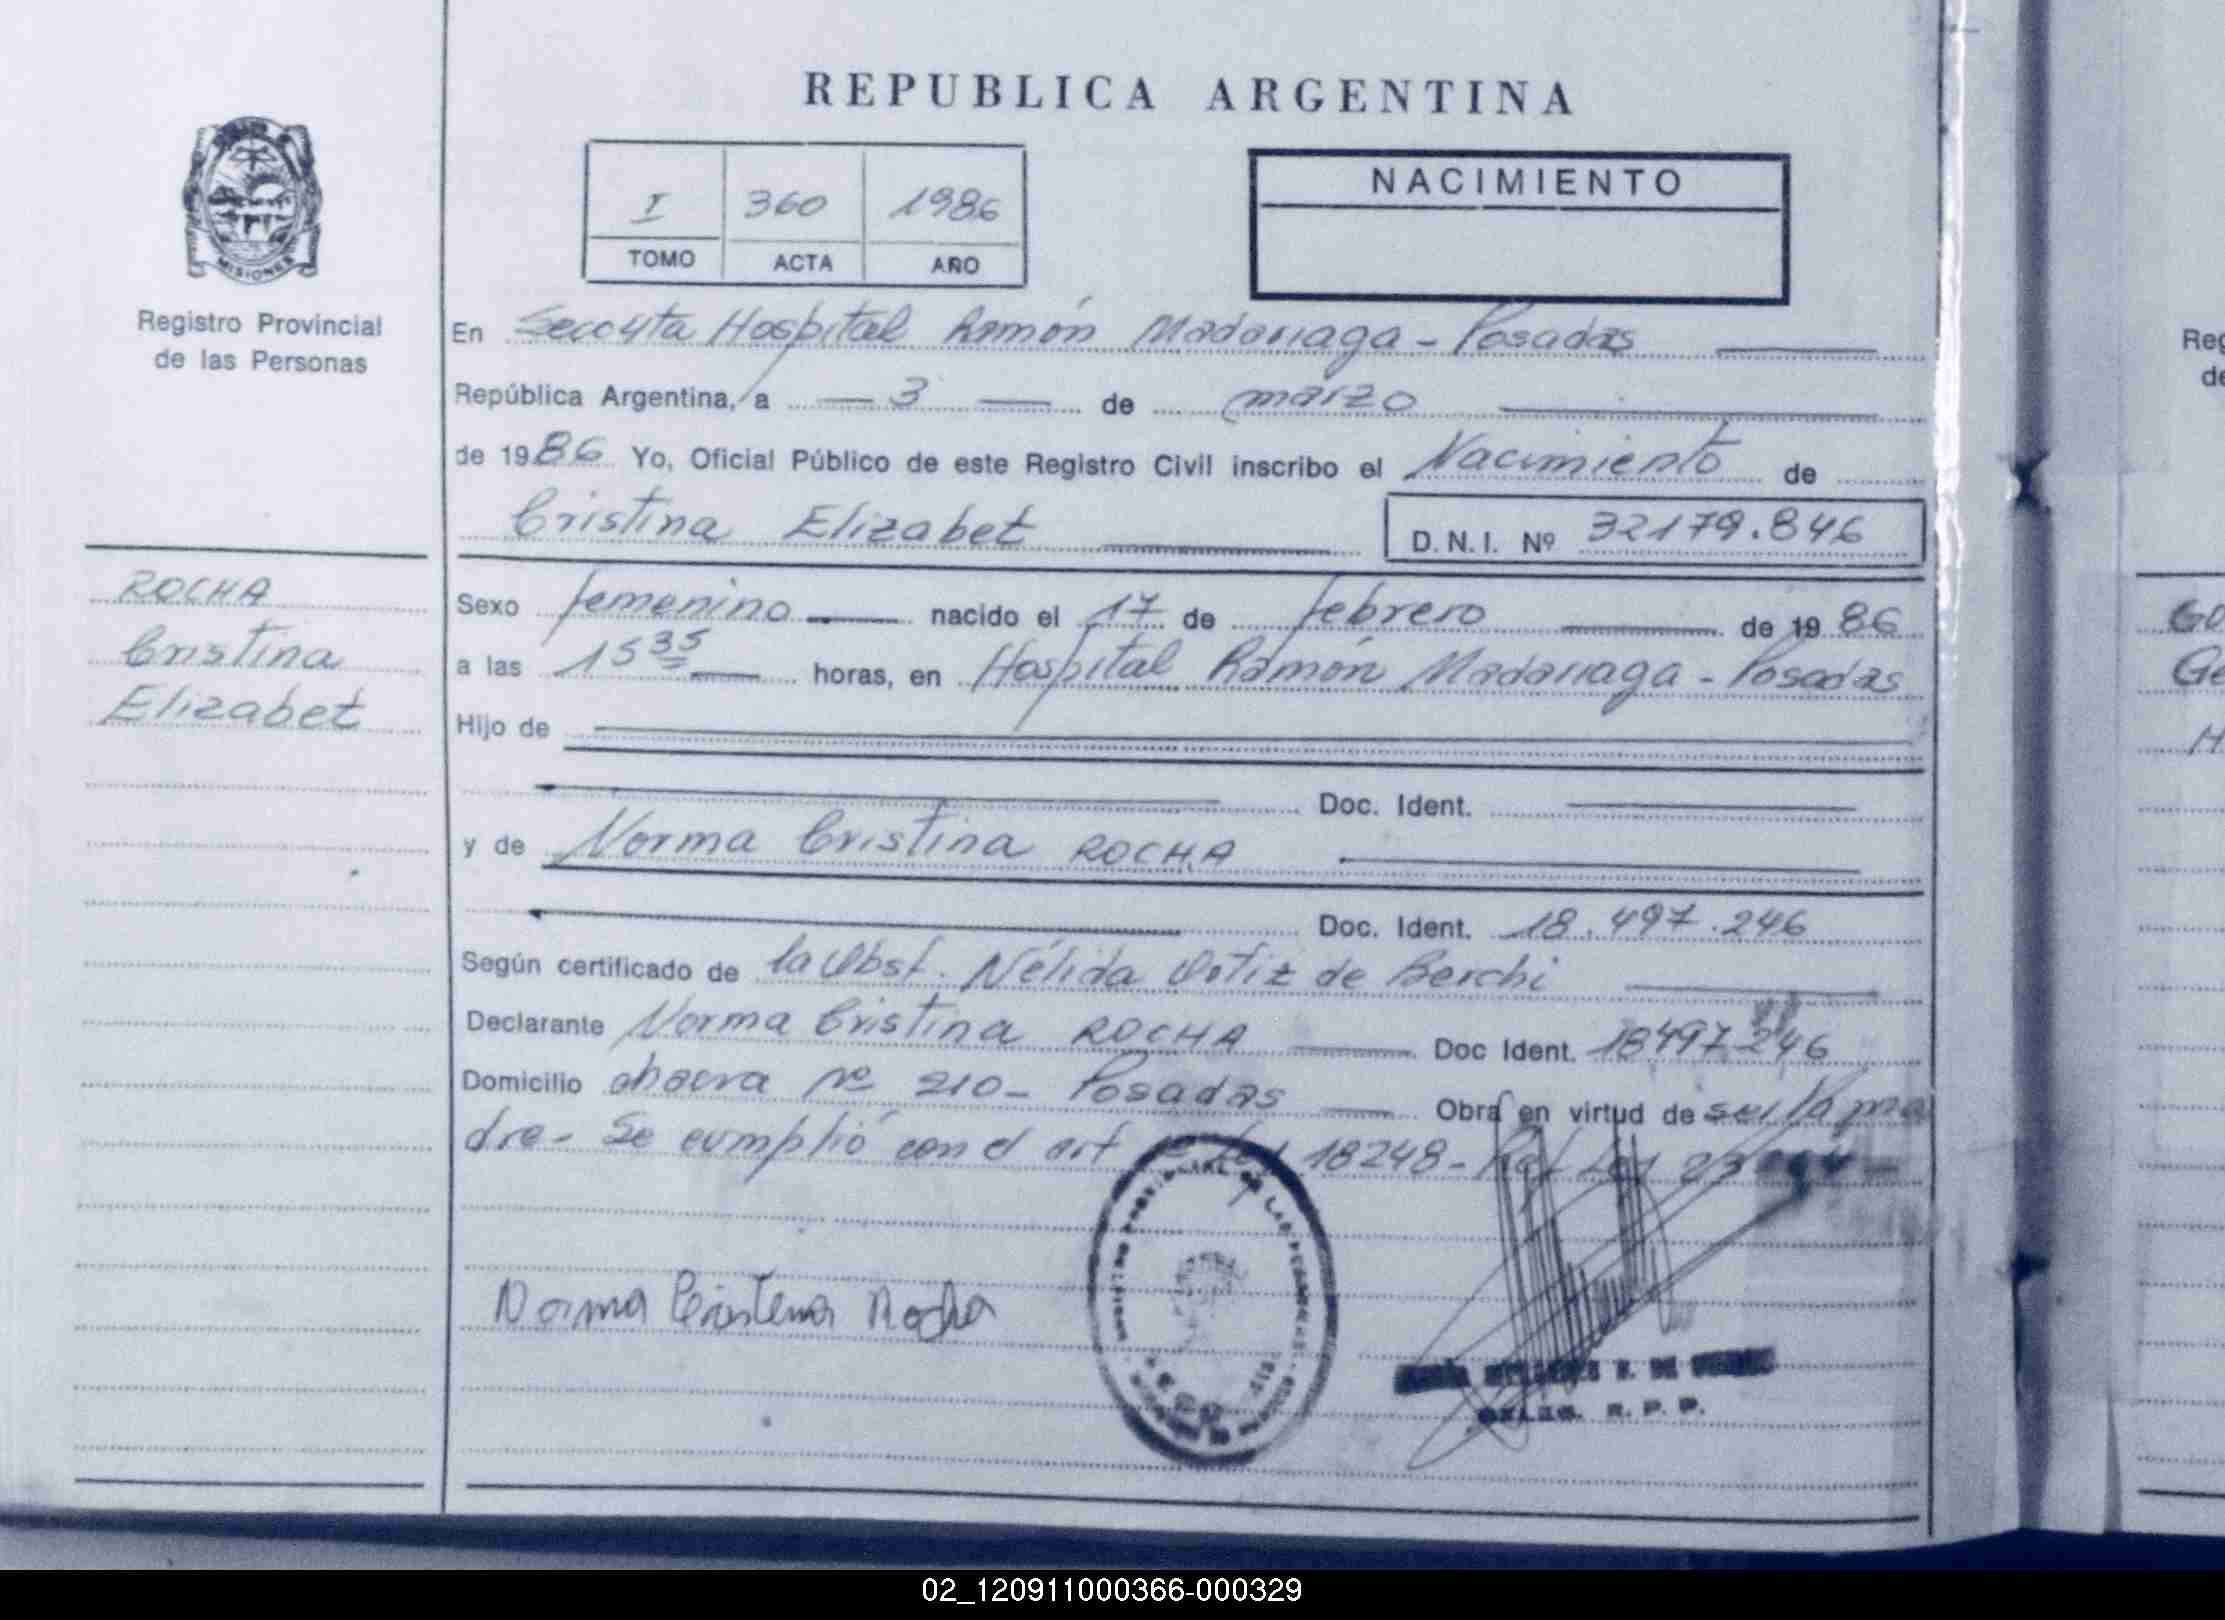 REPUBLICA ARGENTINA
MISIONES
Registro Provincial
de las Personas
I 360 1986
TOMO ACTA AÑO
NACIMIENTO
En Hospital Ramón Madariaga - Posadas
República Argentina, a 3 de marzo
de 1986 Yo, Oficial Público de este Registro Civil inscribo el Nacimiento de
Cristina Elizabet D.N.I. Nº 32179.846
ROCHA
Cristina
Elizabet
Sexo femenino nacido el 17 de febrero de 1986
a las 15 35 horas, en Hospital Ramón Madariaga - Posadas
Hijo de
Doc. Ident.
y de Norma Cristina ROCHA
Doc. Ident. 18.497.246
Según certificado de la Obst. Nélida Ortiz de Berchi
Declarante Norma Cristina ROCHA Doc Ident. 18497246
Domicilio chacra nº 210- Posadas Obra en virtud de ser la ma
dre- Se cumplió con el art Ley 18248-
Norma Cristina Rocha
R. P. P.
Reg
de
02_120911000366-000329